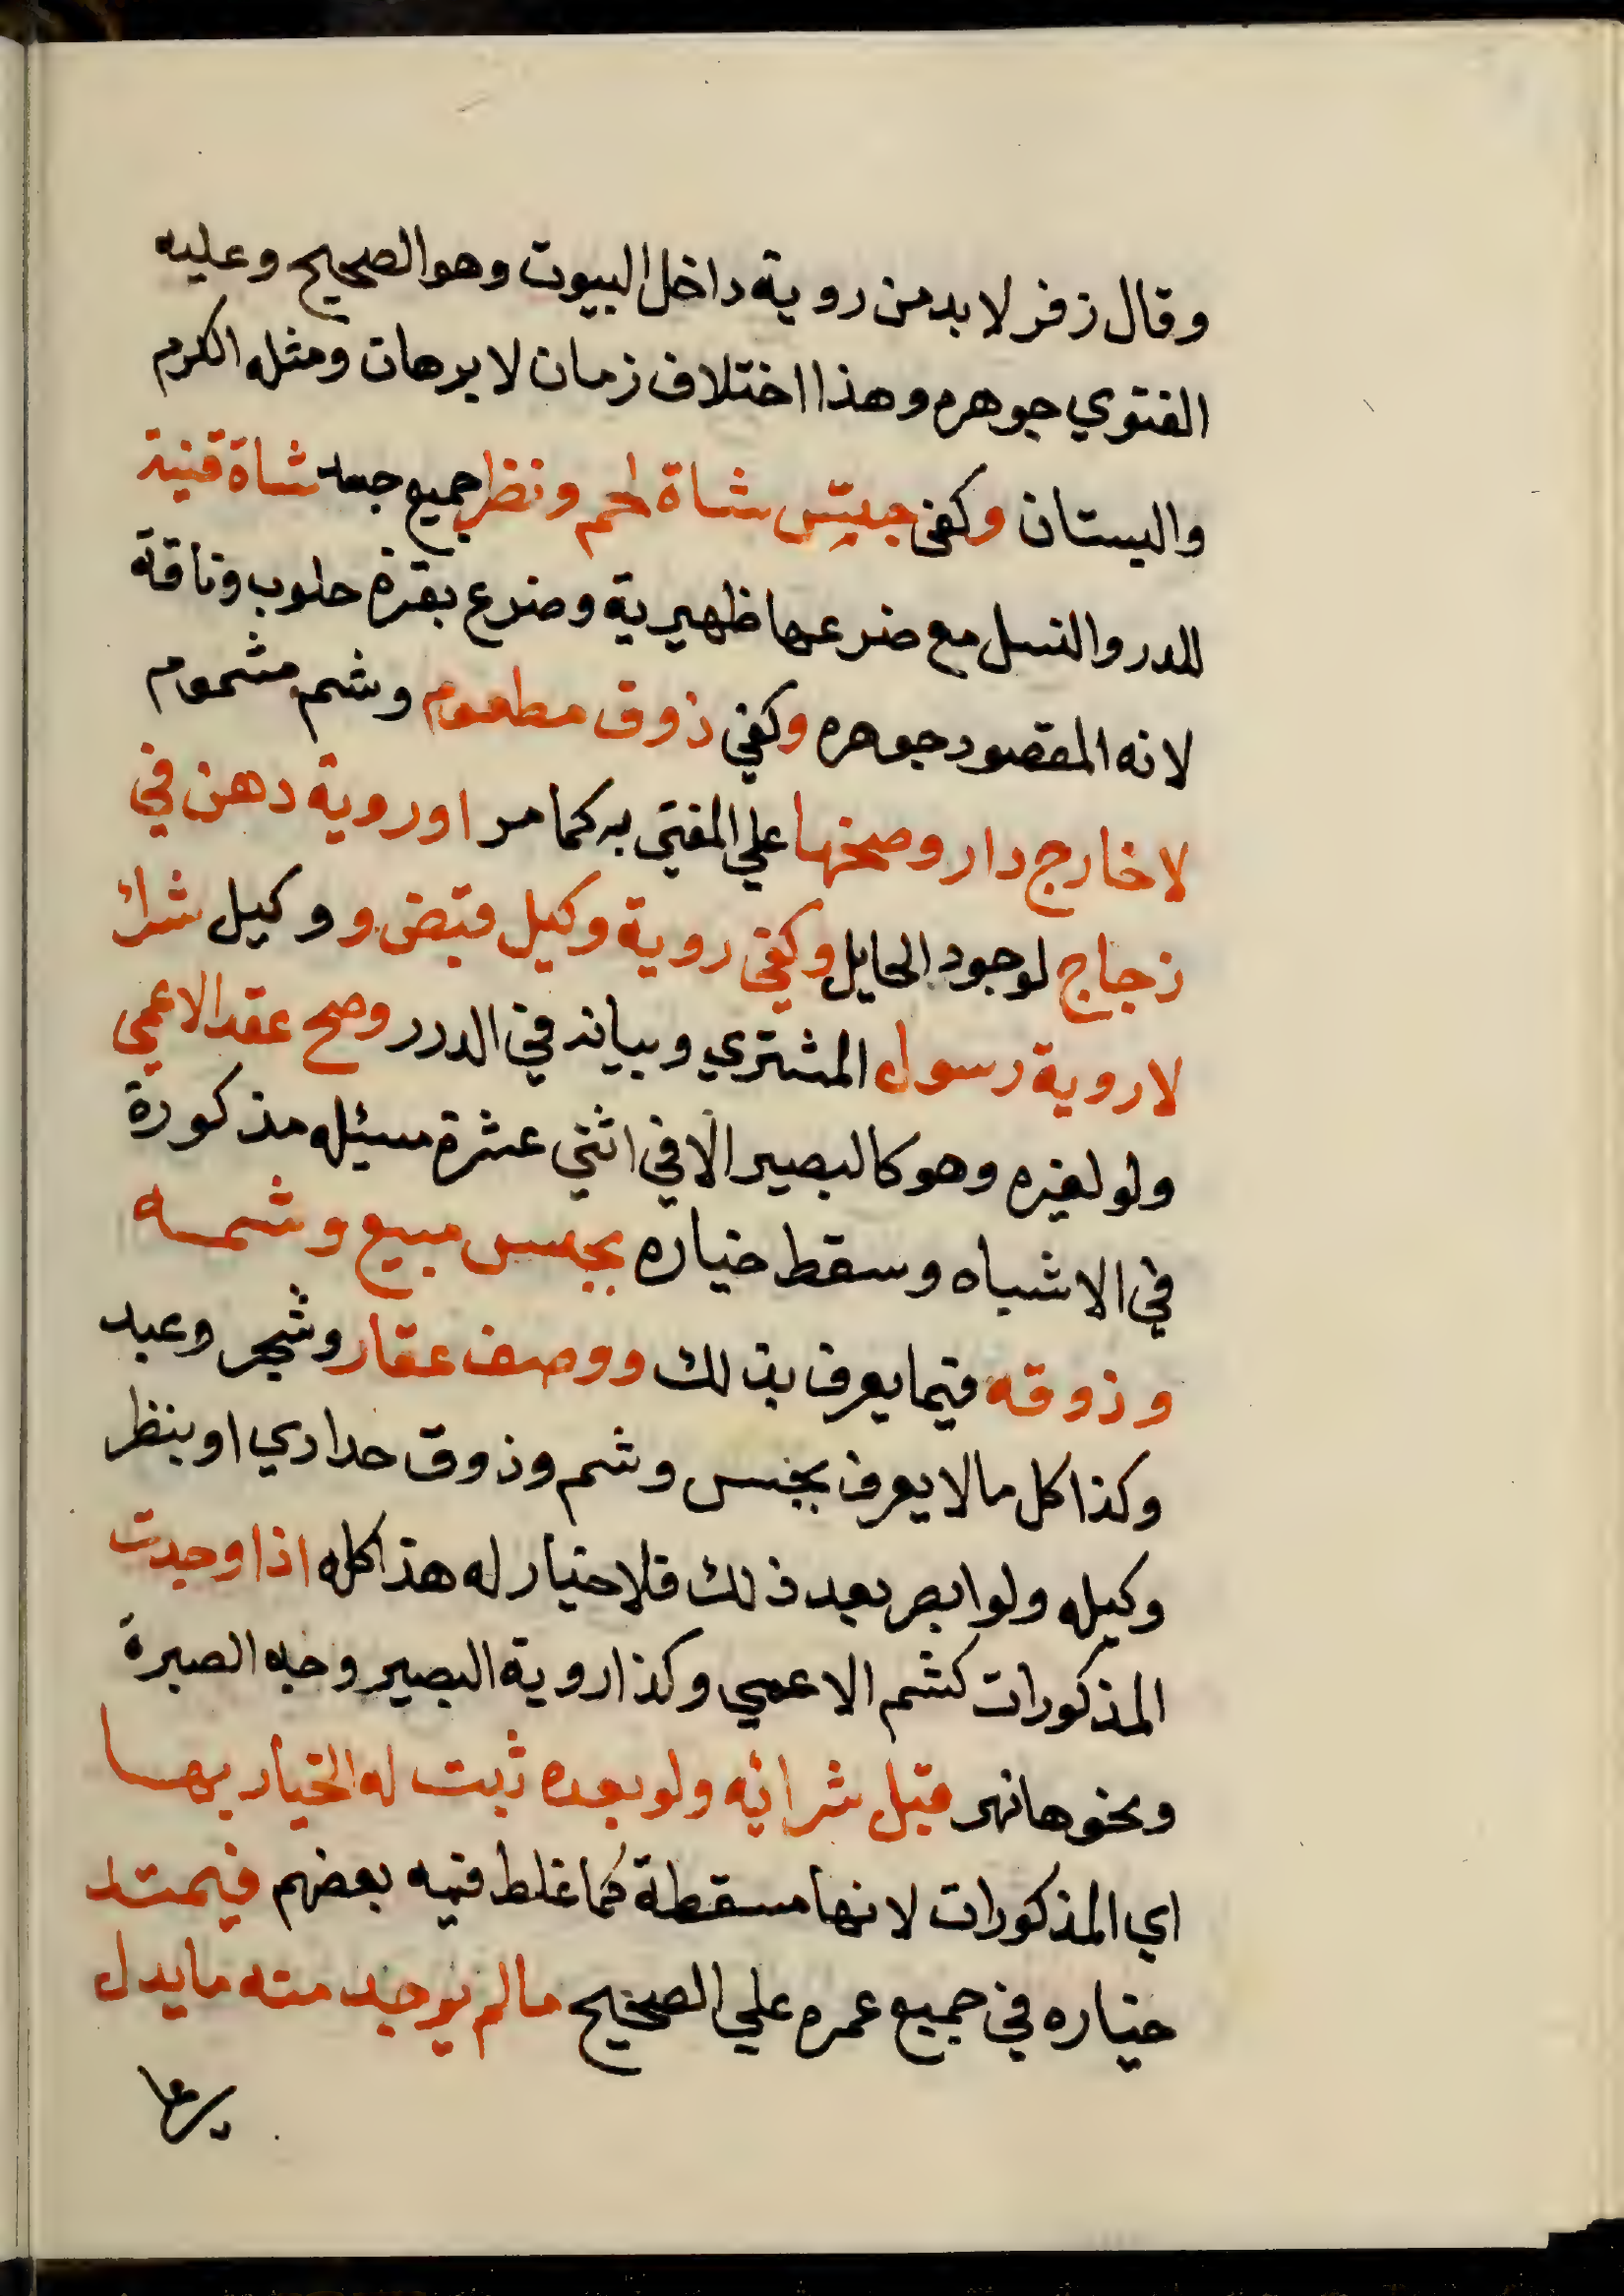 وقال زفر لا بد من روية داخل البيوت وهو الصحيح وعليه
الفتوي جوهره وهذا اختلاف زمان لا برهان ومثله الكرم
والبستان وكفى جبس شاة لحم ونظر جميع جسد شاة قنية
للدر والنسل مع ضرعها ظهيرية وضرع بقرة حلوب وناقة
لانه المقصود جوهره وكفي ذوق مطعوم وشم مشموم
لا خارج دار وصحنها علي المفتى به كما مر او روية دهن في
زجاج لوجود الحايل وكفي روية وكيل قبض و وكيل شراء
لا روية رسول المشتري وبيانه في الدرر وصح عقد الاعمي
ولو لغيره وهو كالبصير الا في اثني عشرة مسئله مذكورة
في الاشباه وسقط خياره بجس مبيع وشمه
وذوقه فيما يعرف بذلك ووصف عقار وشجر وعبد
وكذا كل ما لا يعرف بجس وشم وذوق حدادي او بنظر
وكيله ولو ابصر بعد ذلك فلا خيار له هذا كله اذا وجدت
المذكورات كشم الاعمي وكذا روية البصير وجه الصبرة
ونحوها نهر قبل شرائه ولو بعده ثبت له الخيار بها
اي المذكورات لانها مسقطة كما غلط فيه بعضهم فيمتد
خياره في جميع عمره علي الصحيح مالم يوجد منه ما يدل